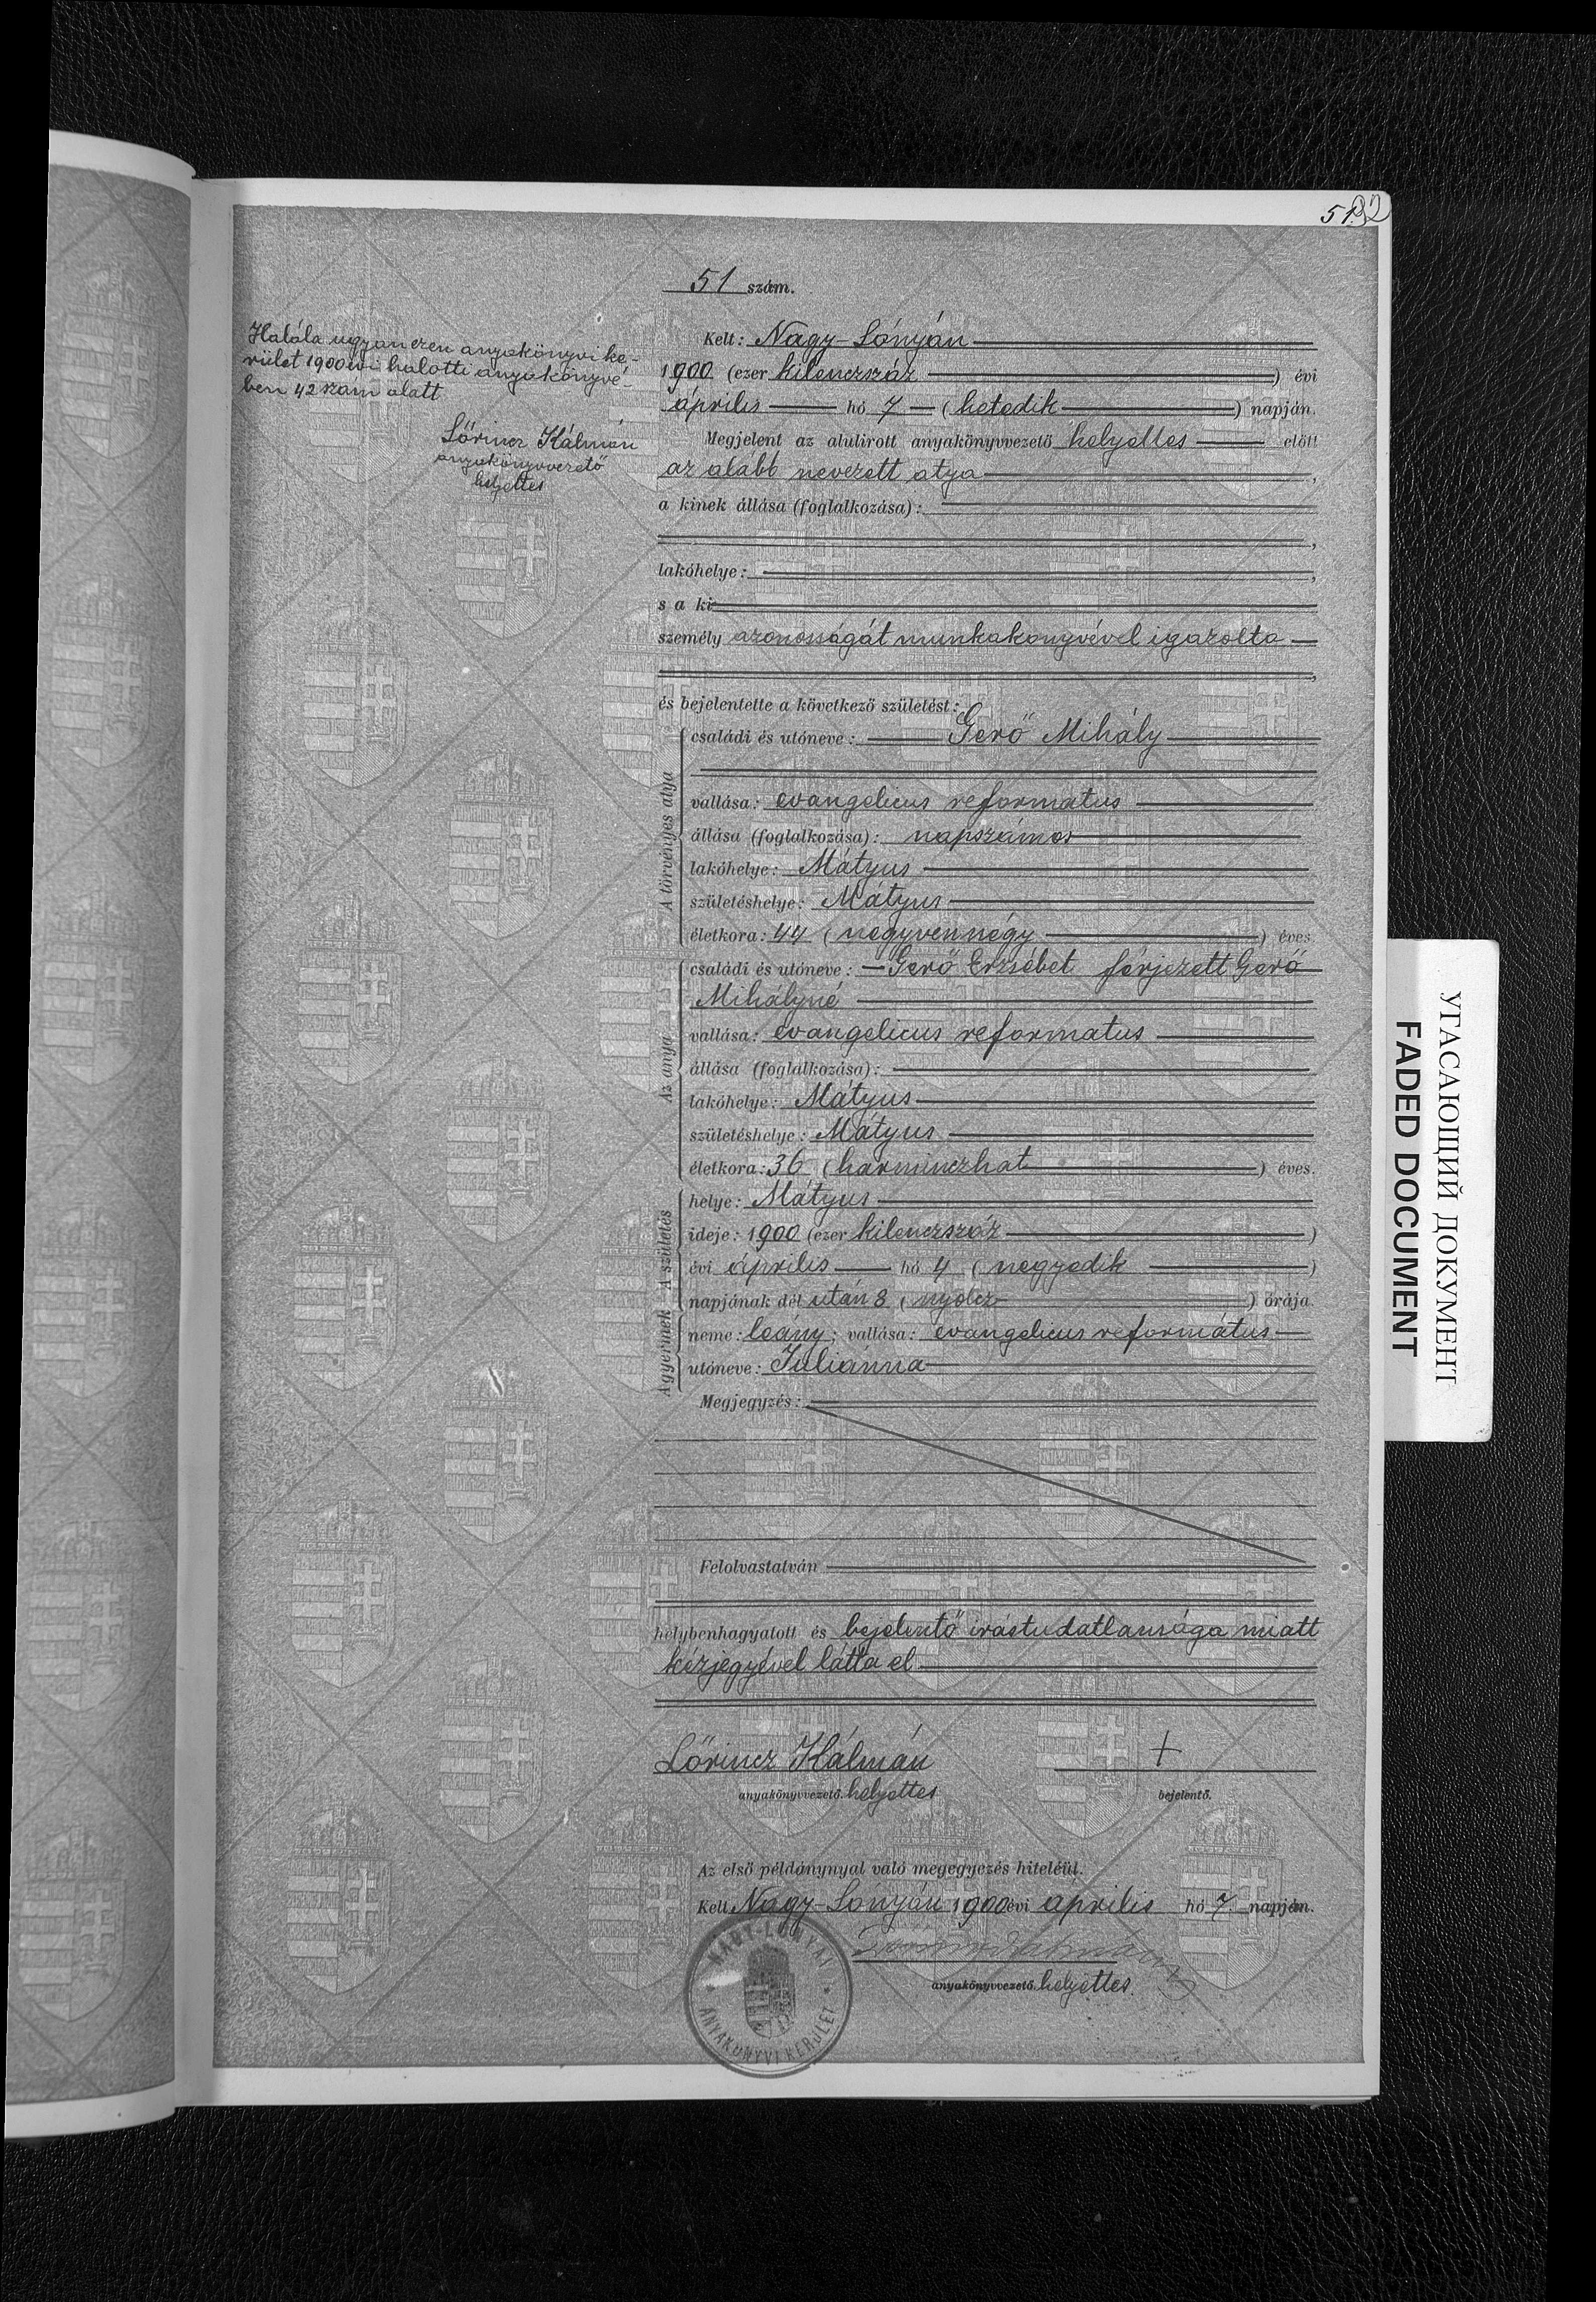 51
51 szám.
Halála ugyanezen anyakönyvi ke-
rület 1900 évi halotti anyakönyvé-
ben 42 szám alatt
Lőrincz Kálmán
anyakönyvvezető
helyettes
Kelt: Nagy-Lónyán
1900 (ezer kilenczszáz) évi
április hó 7 (hetedik) napján.
Megjelent az alulirott anyakönyvvezető helyettes előtt
az alább nevezett atya,
a kinek állása (foglalkozása):
,
lakóhelye: ,
s a ki
személy azonosságát munkakonyvével igazolta
,
és bejelentette a következő születést:
A törvényes atya
családi és utóneve: Gerő Mihály
vallása: evangelicus reformatus
állása (foglalkozása): napszámos
lakóhelye: Mátyus
születéshelye: Mátyus
életkora: 44 (negyvennégy) éves.
Az anya
családi és utóneve: Gerő Erzsébet férjezett Gerő
Mihályné
vallása: evangelicus reformatus
állása (foglalkozása):
lakóhelye: Mátyus
születéshelye: Mátyus
életkora: 36 (harminczhat) éves.
A születés
helye: Mátyus
ideje: 1900 (ezer kilenczszáz)
évi április hó 4 (negyedik)
napjának dél után 8 (nyolcz) órája.
A gyermek
neme: leány; vallása: evangelicus református
utóneve: Juliánna
Megjegyzés:
Felolvastatván
helybenhagyatott és bejelentő irástudatlansága miatt
kézjegyével látta el
Lőrincz Kálmán
+
anyakönyvvezető. helyettes
bejelentő.
Az első példánynyal való megegyezés hiteléül.
Kelt Nagy-Lónyán 1900 évi április hó 7. napján.
anyakönyvvezető. helyettes.
NAGY-LÓNYAI
ANYAKÖNYVI KERÜLET
УГАСАЮЩИЙ ДОКУМЕНТ
FADED DOCUMENT